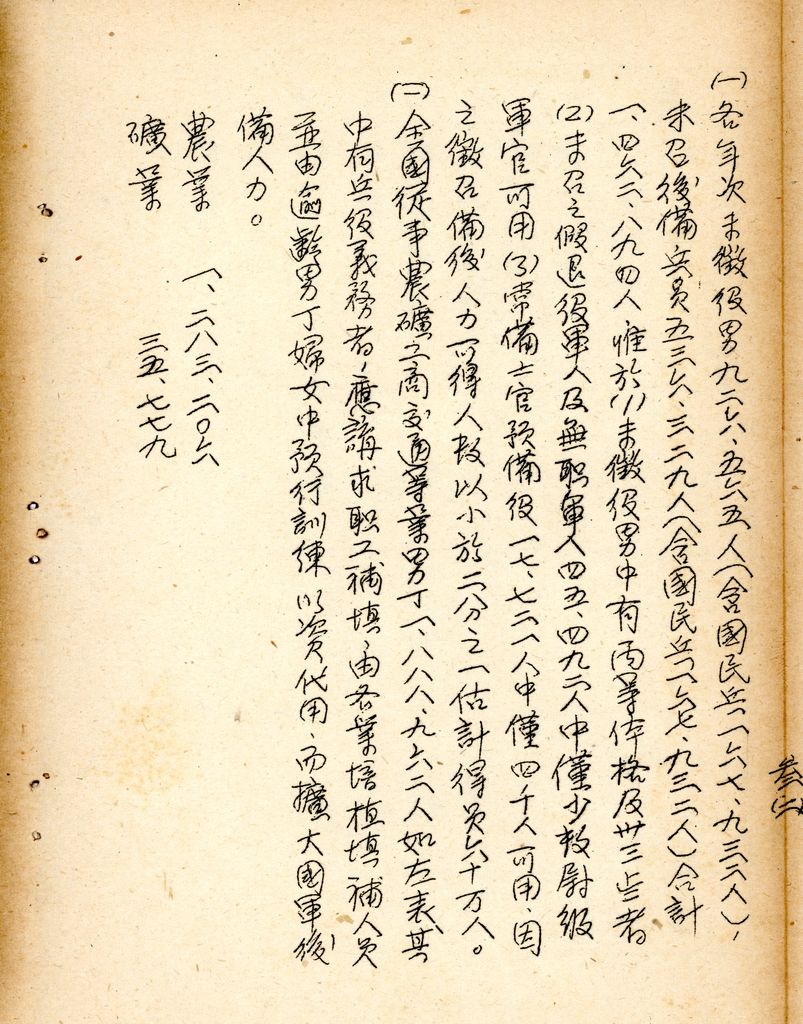 叁(二)
(一)各年次未徵役男九二六、五六五人(含國民兵一六七、九三二人),
未召後備兵員五三六、三二九人(含國民兵一六七、九三二人)合計
一、四六二、八九四人惟於(1)未徵役男中有丙等体格及卅三歲者
(2)未召之假退役軍人及無职軍人四五、四九二人中僅少数尉級
軍官可用(3)常備士官預備役一七、七二一人中僅四千人可用、因
之徵召備後人力可得人数以小於二分之一估計得員六十万人。
(一)全國從事農礦工商交通等業男丁一、八八八、九六二人如左表其
中有兵役義務者,應講求职工補填、由各業培植填補人員
並由逾齡男丁婦女中預行訓練以資代用、而擴大國軍後
備人力。
農業 一、二八三、二〇六
礦業 三五、七七九